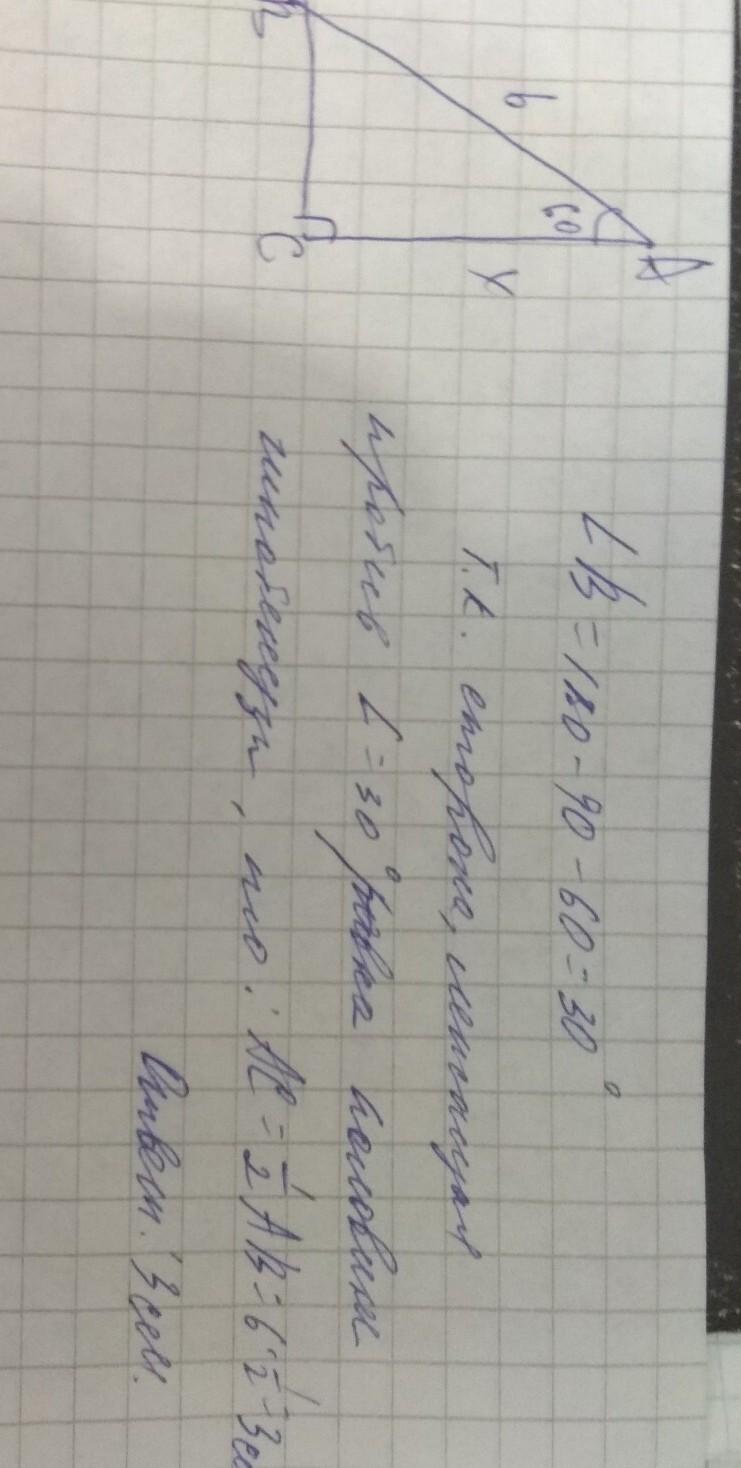 A
60
6
x
B
C
∠B = 180 - 90 - 60 = 30°
т.к. сторона, лежащая
против ∠ = 30° равна половине
гипотенузы, то: AC = 1/2 AB = 6 · 1/2 = 3 см
Ответ: 3 см.